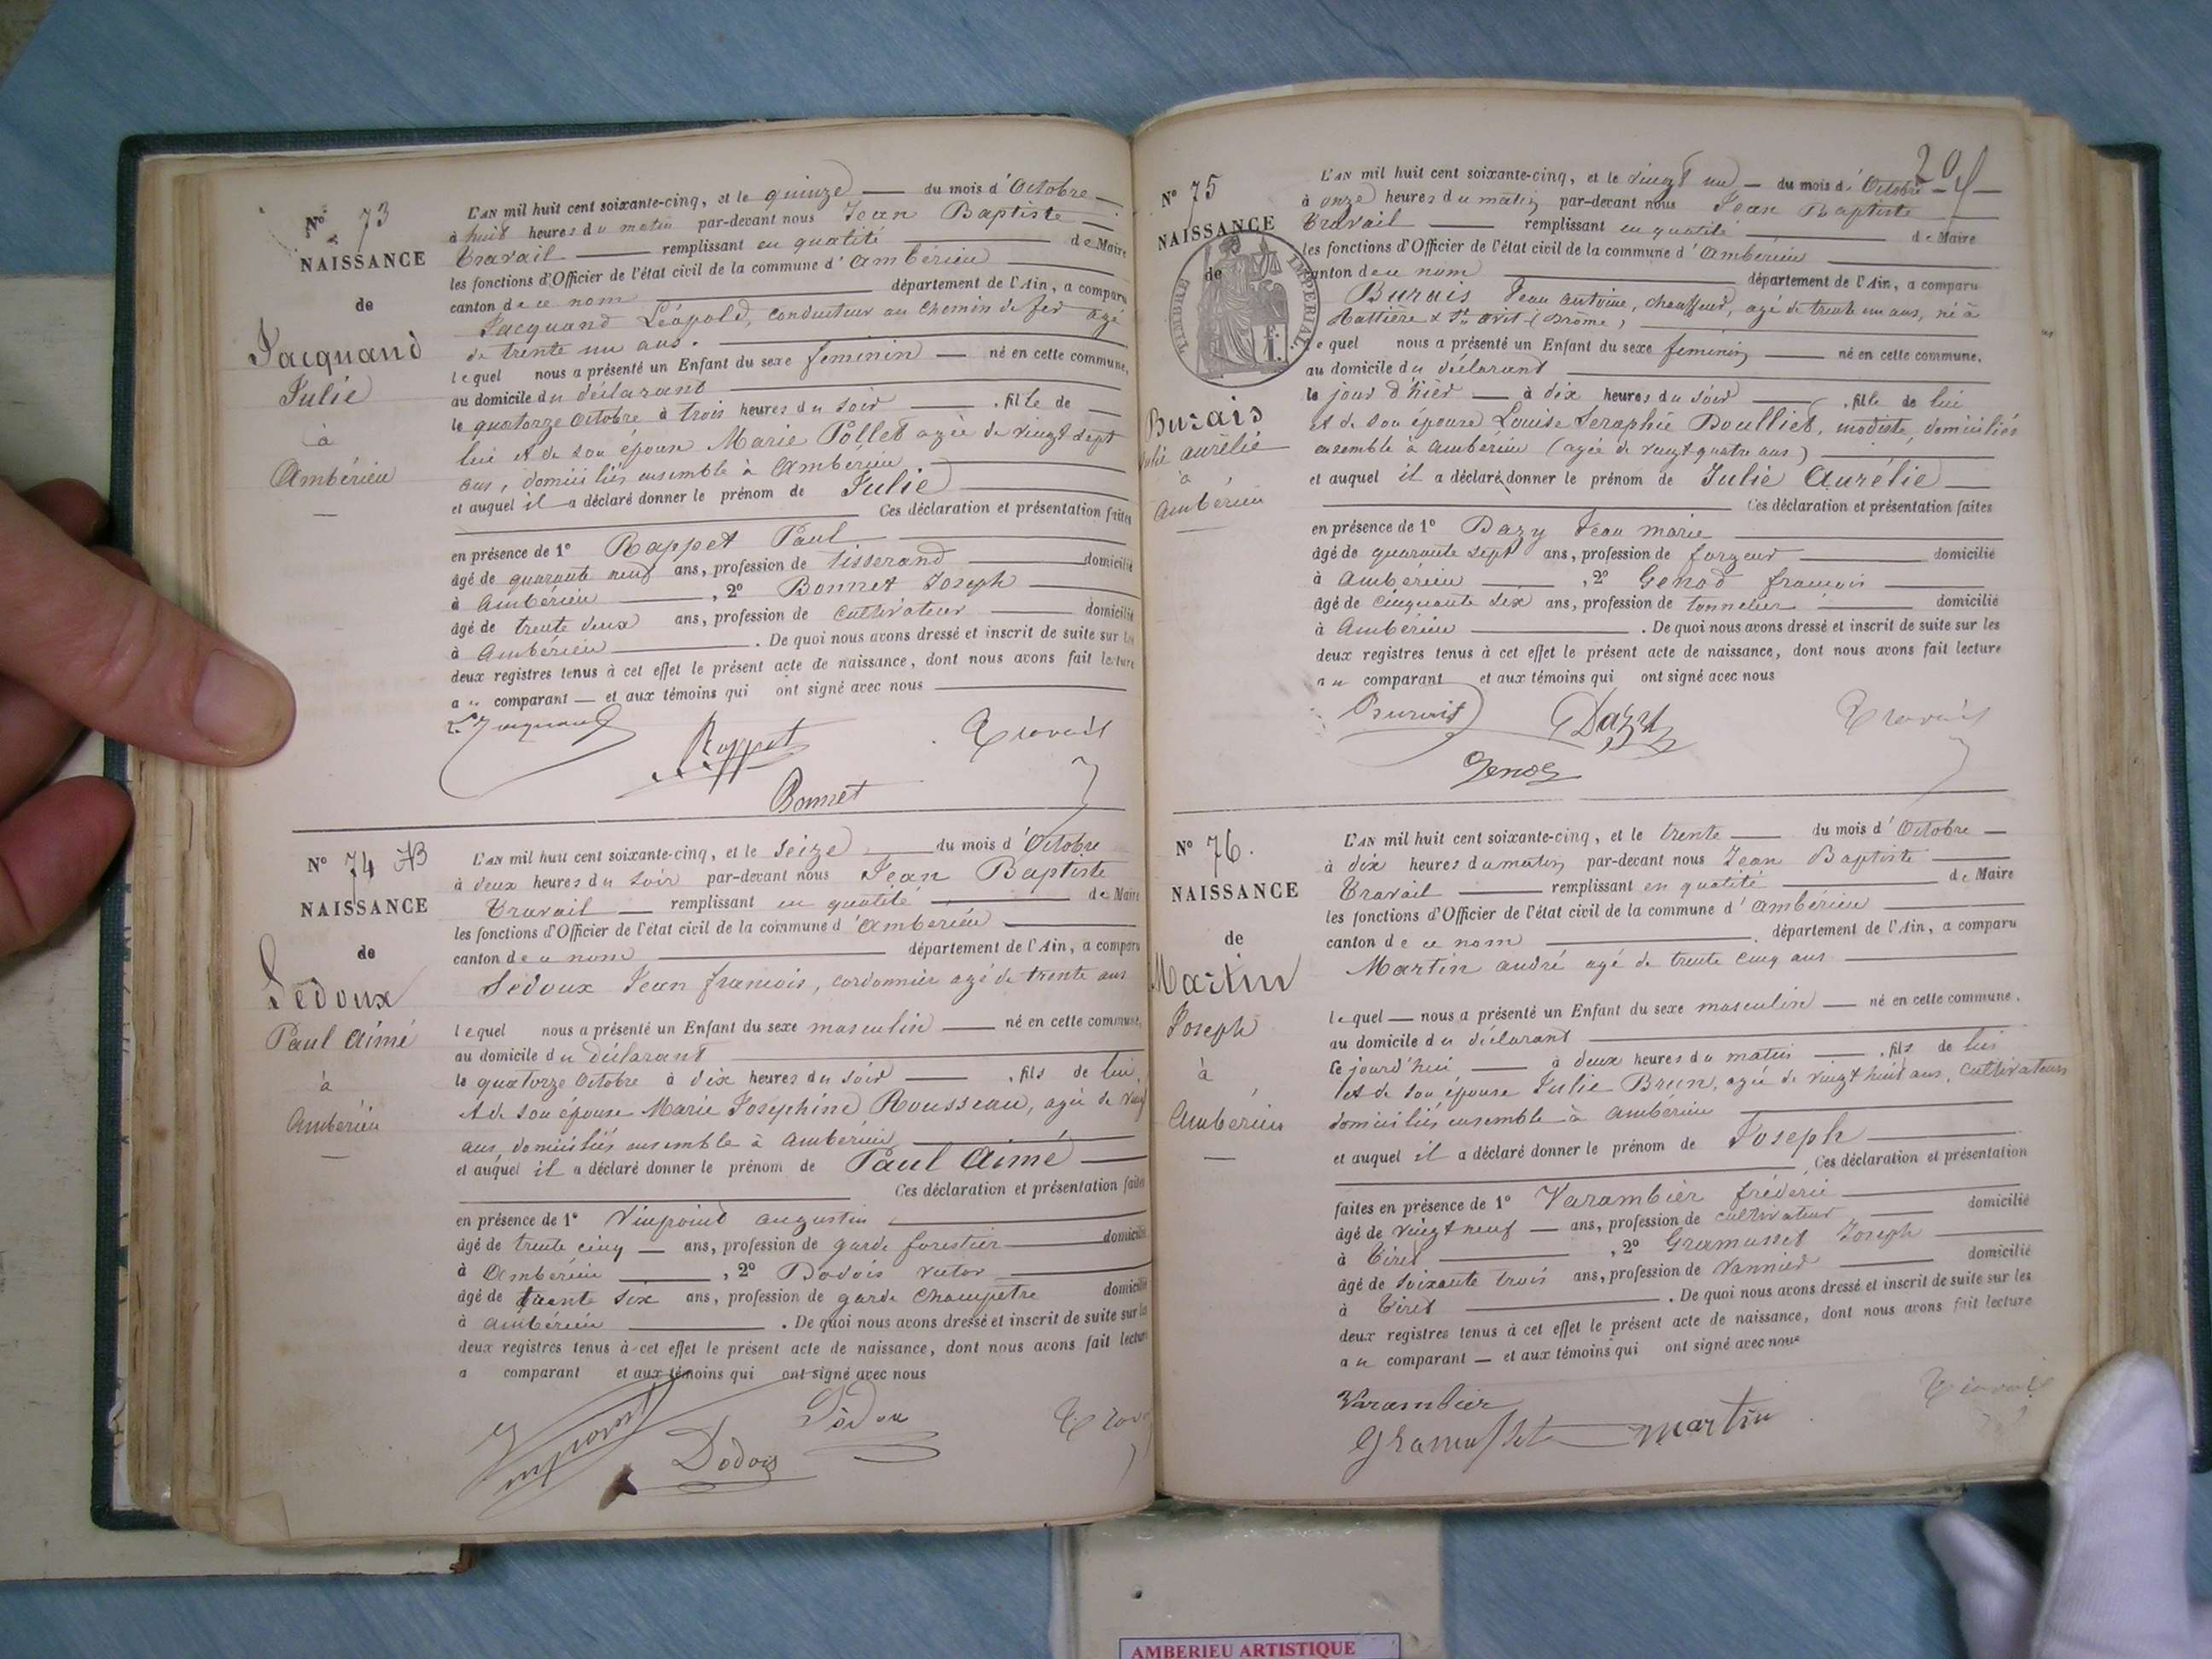 N° 73
NAISSANCE
de
Jacquand
Julie
à
Ambérieu
L'AN mil huit cent soixante-cinq, et le quinze du mois d'Octobre
à huit heures du matin par-devant nous Jean Baptiste
Travail remplissant en qualité de Maire
les fonctions d'Officier de l'état civil de la commune d'Ambérieu
canton de ce nom département de l'Ain, a comparu
Jacquand Léopold, conducteur au chemin de fer agé
de trente un ans.
lequel nous a présenté un Enfant du sexe feminin né en cette commune,
au domicile du déclarant
le quatorze Octobre à trois heures du soir , fille de
lui et de son épouse Marie Pollet agée de vingt sept
ans, domiciliés ensemble à Ambérieu
et auquel il a déclaré donner le prénom de Julie
Ces déclaration et présentation faites
en présence de 1° Rappet Paul
âgé de quarante neuf ans, profession de tisserand domicilié
à Ambérieu , 2° Bonnet Joseph
âgé de trente deux ans, profession de cultivateur domicilié
à Ambérieu . De quoi nous avons dressé et inscrit de suite sur les
deux registres tenus à cet effet le présent acte de naissance, dont nous avons fait lecture
au comparant et aux témoins qui ont signé avec nous
L. Jacquand
Rappet
Travail
Bonnet
N° 74
NAISSANCE
de
Ledoux
Paul Aimé
à
Ambérieu
L'AN mil huit cent soixante-cinq, et le seize du mois d'Octobre
à deux heures du soir par-devant nous Jean Baptiste
Travail remplissant en qualité de Maire
les fonctions d'Officier de l'état civil de la commune d'Ambérieu
canton de ce nom département de l'Ain, a comparu
Ledoux Jean francois, cordonnier agé de trente ans
lequel nous a présenté un Enfant du sexe masculin né en cette commune,
au domicile du déclarant
le quatorze Octobre à dix heures du soir , fils de lui
et de son épouse Marie Josephine Rousseau, agée de vingt
ans, domiciliés ensemble à Ambérieu
et auquel il a déclaré donner le prénom de Paul Aimé
Ces déclaration et présentation faites
en présence de 1° Vinpoint augustin
âgé de trente cinq ans, profession de garde forestier domicilié
à Ambérieu , 2° Dodois victor
âgé de trente six ans, profession de garde champetre domicilié
à Ambérieu . De quoi nous avons dressé et inscrit de suite sur les
deux registres tenus à cet effet le présent acte de naissance, dont nous avons fait lecture
a comparant et aux témoins qui ont signé avec nous
Dodois
N° 75
NAISSANCE
de
TIMBRE IMPERIAL
Burais
Julie aurélie
à
Ambérieu
L'AN mil huit cent soixante-cinq, et le vingt un du mois d'Octobre
à onze heures du matin par-devant nous Jean Baptiste
Travail remplissant en qualité de Maire
les fonctions d'Officier de l'état civil de la commune d'Ambérieu
canton de ce nom département de l'Ain, a comparu
Burais Jean antoine, chauffeur, agé de trente un ans, né à
(Drôme)
lequel nous a présenté un Enfant du sexe feminin né en cette commune,
au domicile du déclarant
le jour d'hier à dix heures du soir , fille de lui
et de son épouse Louise Seraphie Boulliet, modiste, domiciliés
ensemble à Ambérieu (agée de vingt quatre ans)
et auquel il a déclaré donner le prénom de Julie Aurélie
Ces déclaration et présentation faites
en présence de 1° Dazy Jean marie
âgé de quarante sept ans, profession de forgeur domicilié
à Ambérieu , 2° Genod françois
âgé de cinquante six ans, profession de tonnelier domicilié
à Ambérieu . De quoi nous avons dressé et inscrit de suite sur les
deux registres tenus à cet effet le présent acte de naissance, dont nous avons fait lecture
au comparant et aux témoins qui ont signé avec nous
Burais
Dazy
Travail
Genod
N° 76.
NAISSANCE
de
Martin
Joseph
à
Ambérieu
L'AN mil huit cent soixante-cinq, et le trente du mois d'Octobre
à dix heures du matin par-devant nous Jean Baptiste
Travail remplissant en qualité de Maire
les fonctions d'Officier de l'état civil de la commune d'Ambérieu
canton de ce nom département de l'Ain, a comparu
Martin andré agé de trente cinq ans
lequel nous a présenté un Enfant du sexe masculin né en cette commune,
au domicile du déclarant
le jourd'hui à deux heures du matin , fils de lui
et de son épouse Julie Brun, agée de vingt huit ans, cultivateurs
domiciliés ensemble à Ambérieu
et auquel il a déclaré donner le prénom de Joseph
Ces déclaration et présentation
faites en présence de 1° Varambier fréderic domicilié
âgé de vingt neuf ans, profession de cultivateur
à Tiret , 2° Gramusset Joseph
âgé de soixante trois ans, profession de vannier domicilié
à Tiret . De quoi nous avons dressé et inscrit de suite sur les
deux registres tenus à cet effet le présent acte de naissance, dont nous avons fait lecture
au comparant et aux témoins qui ont signé avec nous
Varambier
Travail
Gramusset
Martin
AMBERIEU ARTISTIQUE